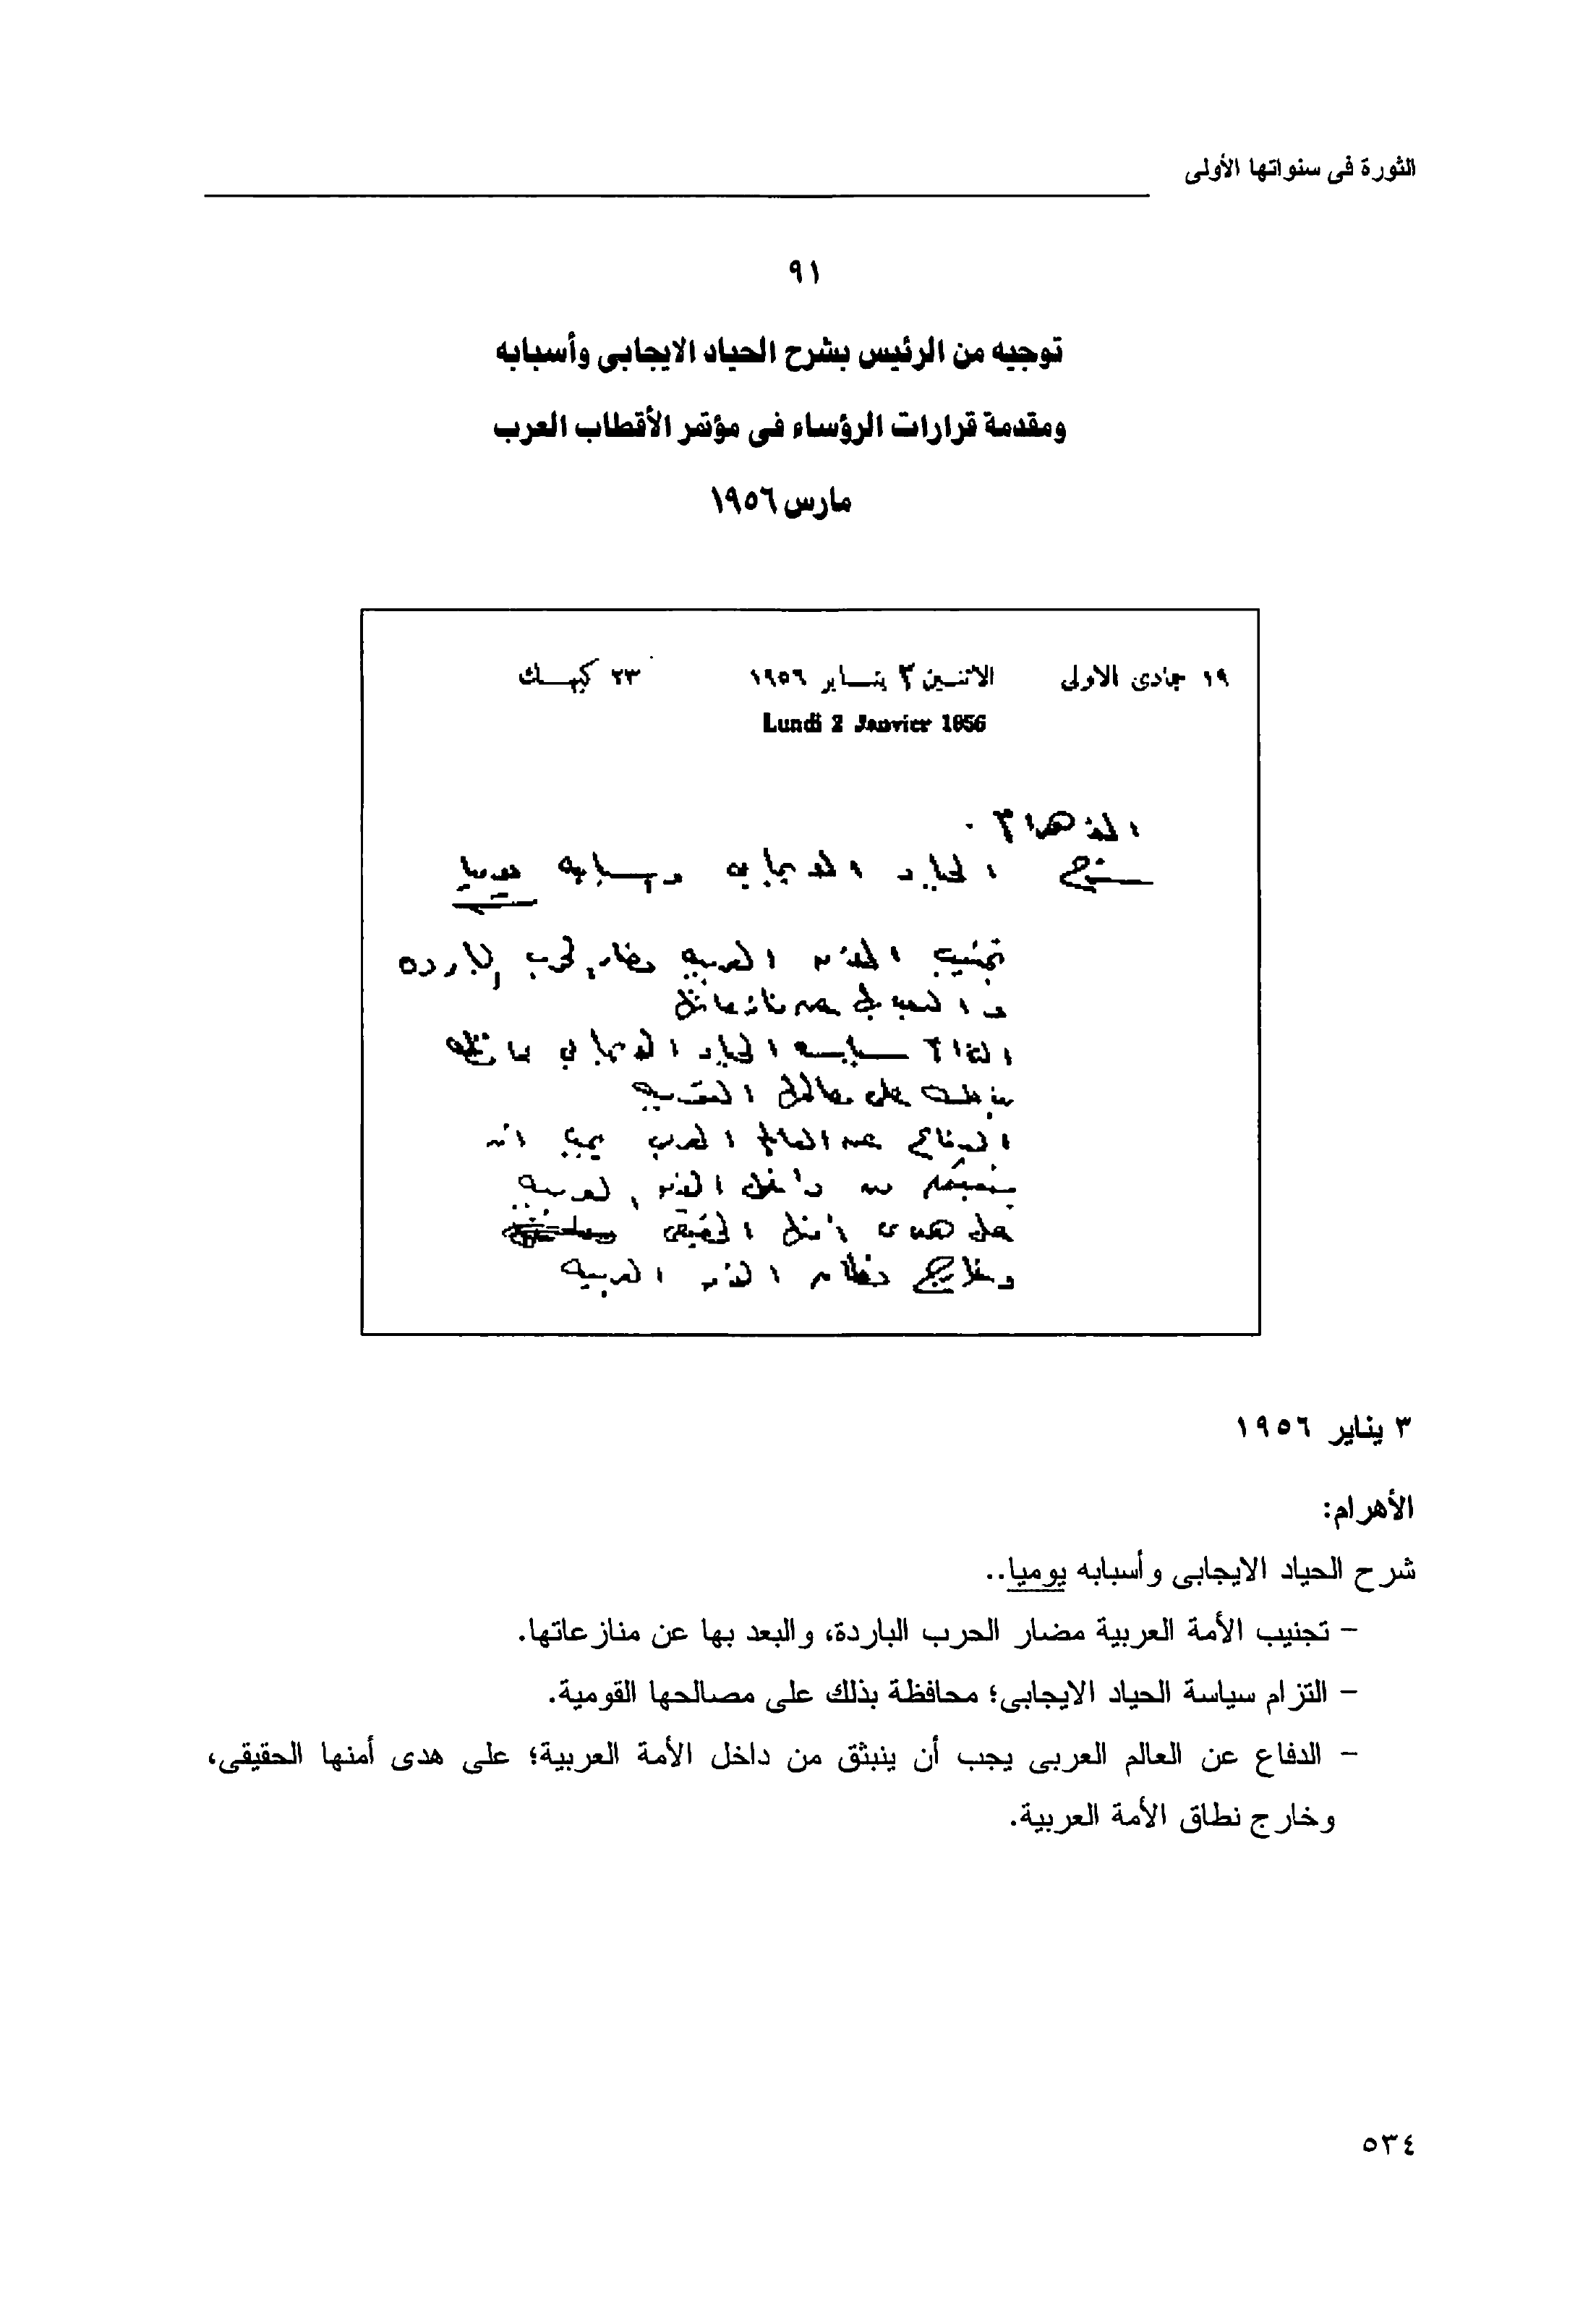 الثورة فى سنواتها الأولى
٩١
توجيه من الرئيس بشرح الحياد الايجابى وأسبابه
ومقدمة قرارات الرؤساء فى مؤتمر الأقطاب العرب
مارس ١٩٥٦
١٩ جمادى الاولى الاثنين ٢ ينـاير ١٩٥٦ ٢٣ كيهـك
Lundi 2 Janvier 1956
الاهرام
شرح الحياد الايجابى وأسبابه يوميا
تجنيب الامة العربيه مضار الحرب الباردة
والبعد بها عن منازعاتها
التزام سياسة الحياد الايجابى محافظة
بذلك على مصالحها القومية
الدفاع عن العالم العربى يجب ان
ينبثق من داخل الامة العربيه
على هدى امنها الحقيقى
وخارج نطاق الامة العربيه
٣ يناير ١٩٥٦
الأهرام:
شرح الحياد الايجابى وأسبابه يوميا..
– تجنيب الأمة العربية مضار الحرب الباردة، والبعد بها عن منازعاتها.
– التزام سياسة الحياد الايجابى؛ محافظة بذلك على مصالحها القومية.
– الدفاع عن العالم العربى يجب أن ينبثق من داخل الأمة العربية؛ على هدى أمنها الحقيقى،
وخارج نطاق الأمة العربية.
٥٣٤